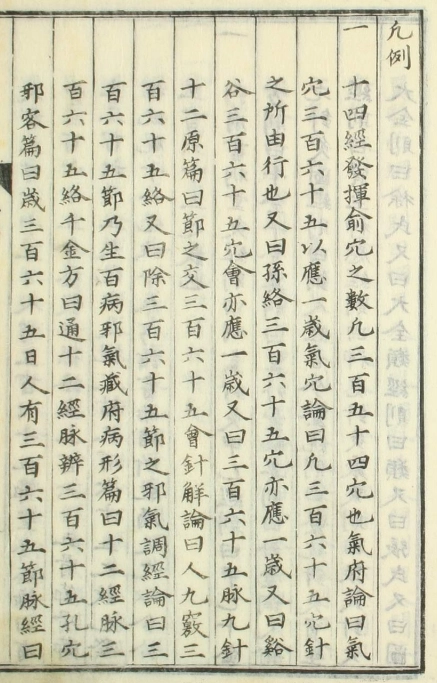 凡例
一
十四經發揮俞穴之數凡三百五十四穴也氣府論曰氣
穴三百六十五以應一歲氣穴論曰凡三百六十五穴針
之所由行也又曰孫絡三百六十五穴亦應一歲又曰谿
谷三百六十五穴會亦應一歲又曰三百六十五脉九針
十二原篇曰節之交三百六十五會針解論曰人九竅三
百六十五絡又曰除三百六十五節之邪氣調經論曰三
百六十五節乃生百病邪氣藏府病形篇曰十二經脉三
百六十五絡千金方曰通十二經脉辨三百六十五孔穴
邪客篇曰歲三百六十五日人有三百六十五節脉經曰